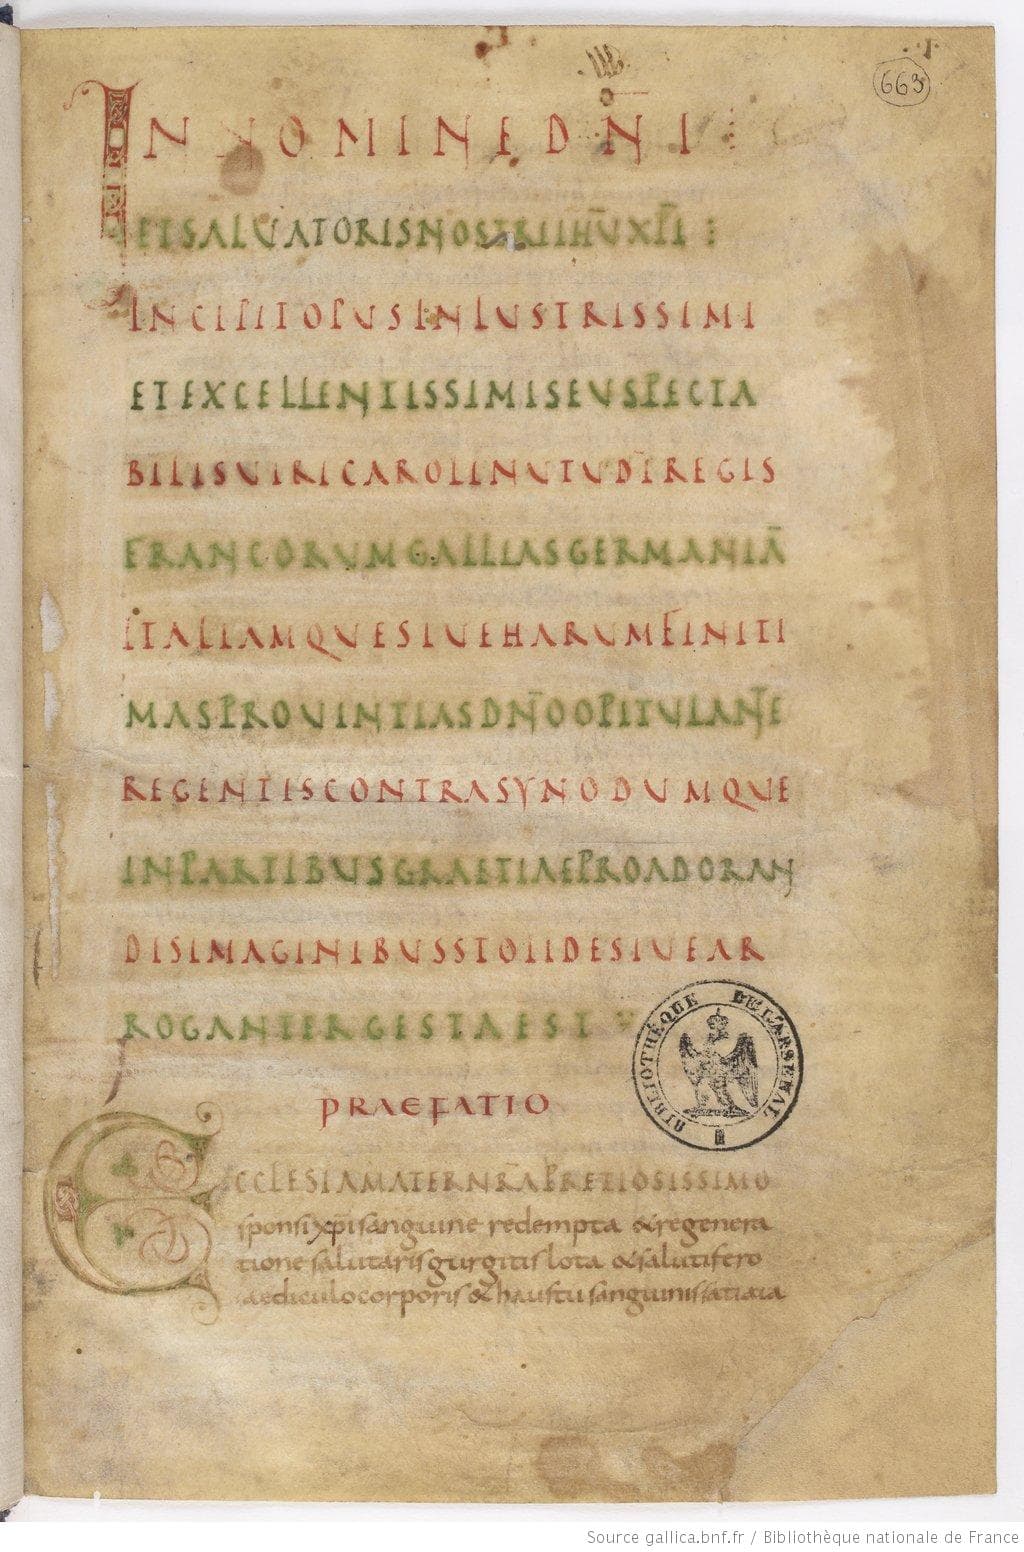 663
IN NOMINE DN̄I
ET SALVATORIS NOSTRI IHŪ XP̄I
INCIPIT OPUS INLUSTRISSIMI
ET EXCELLENTISSIMI SEU SPECTA
BILIS UIRI CAROLI NUTU DĪ REGIS
FRANCORVM GALLIAS GERMANIĀ
ITALIAMQVE SIUE HARUM FINITI
MAS PROUINTIAS DN̄O OPITULANTE
REGENTIS CONTRA SYNODUM QUE
IN PARTIBUS GRAETIAE PRO ADORAN
DIS IMAGINIBUS STOLIDE SIUE AR
ROGANTER GESTA EST
BIBLIOTHÈQUE DE L'ARSENAL
PRAEFATIO
ECCLESIA MATER NR̄A PRETIOSISSIMO
sponsi xp̄i sanguine redempta & regenera
tione salutaris gurgitis lota & salutifero
aediculo corporis & haustu sanguinis satiata
Source gallica.bnf.fr / Bibliothèque nationale de France